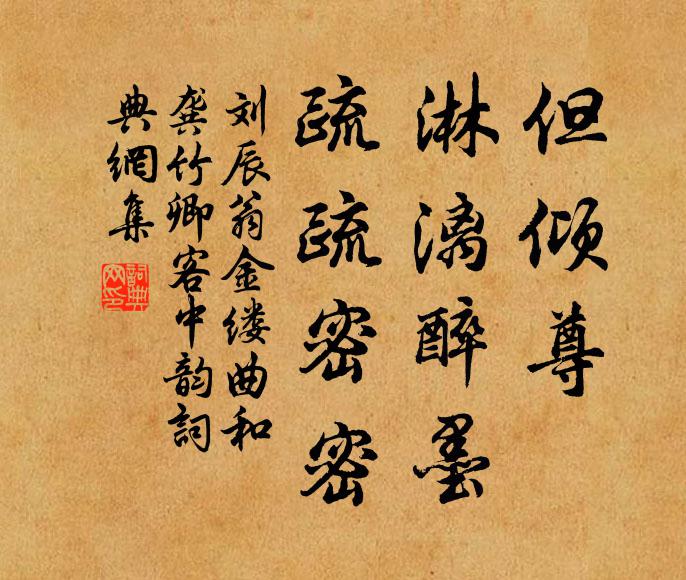 但倾尊
淋漓醉墨
疏疏密密
刘辰翁金缕曲和
龚竹卿客中韵詞
典網集
詞典網印